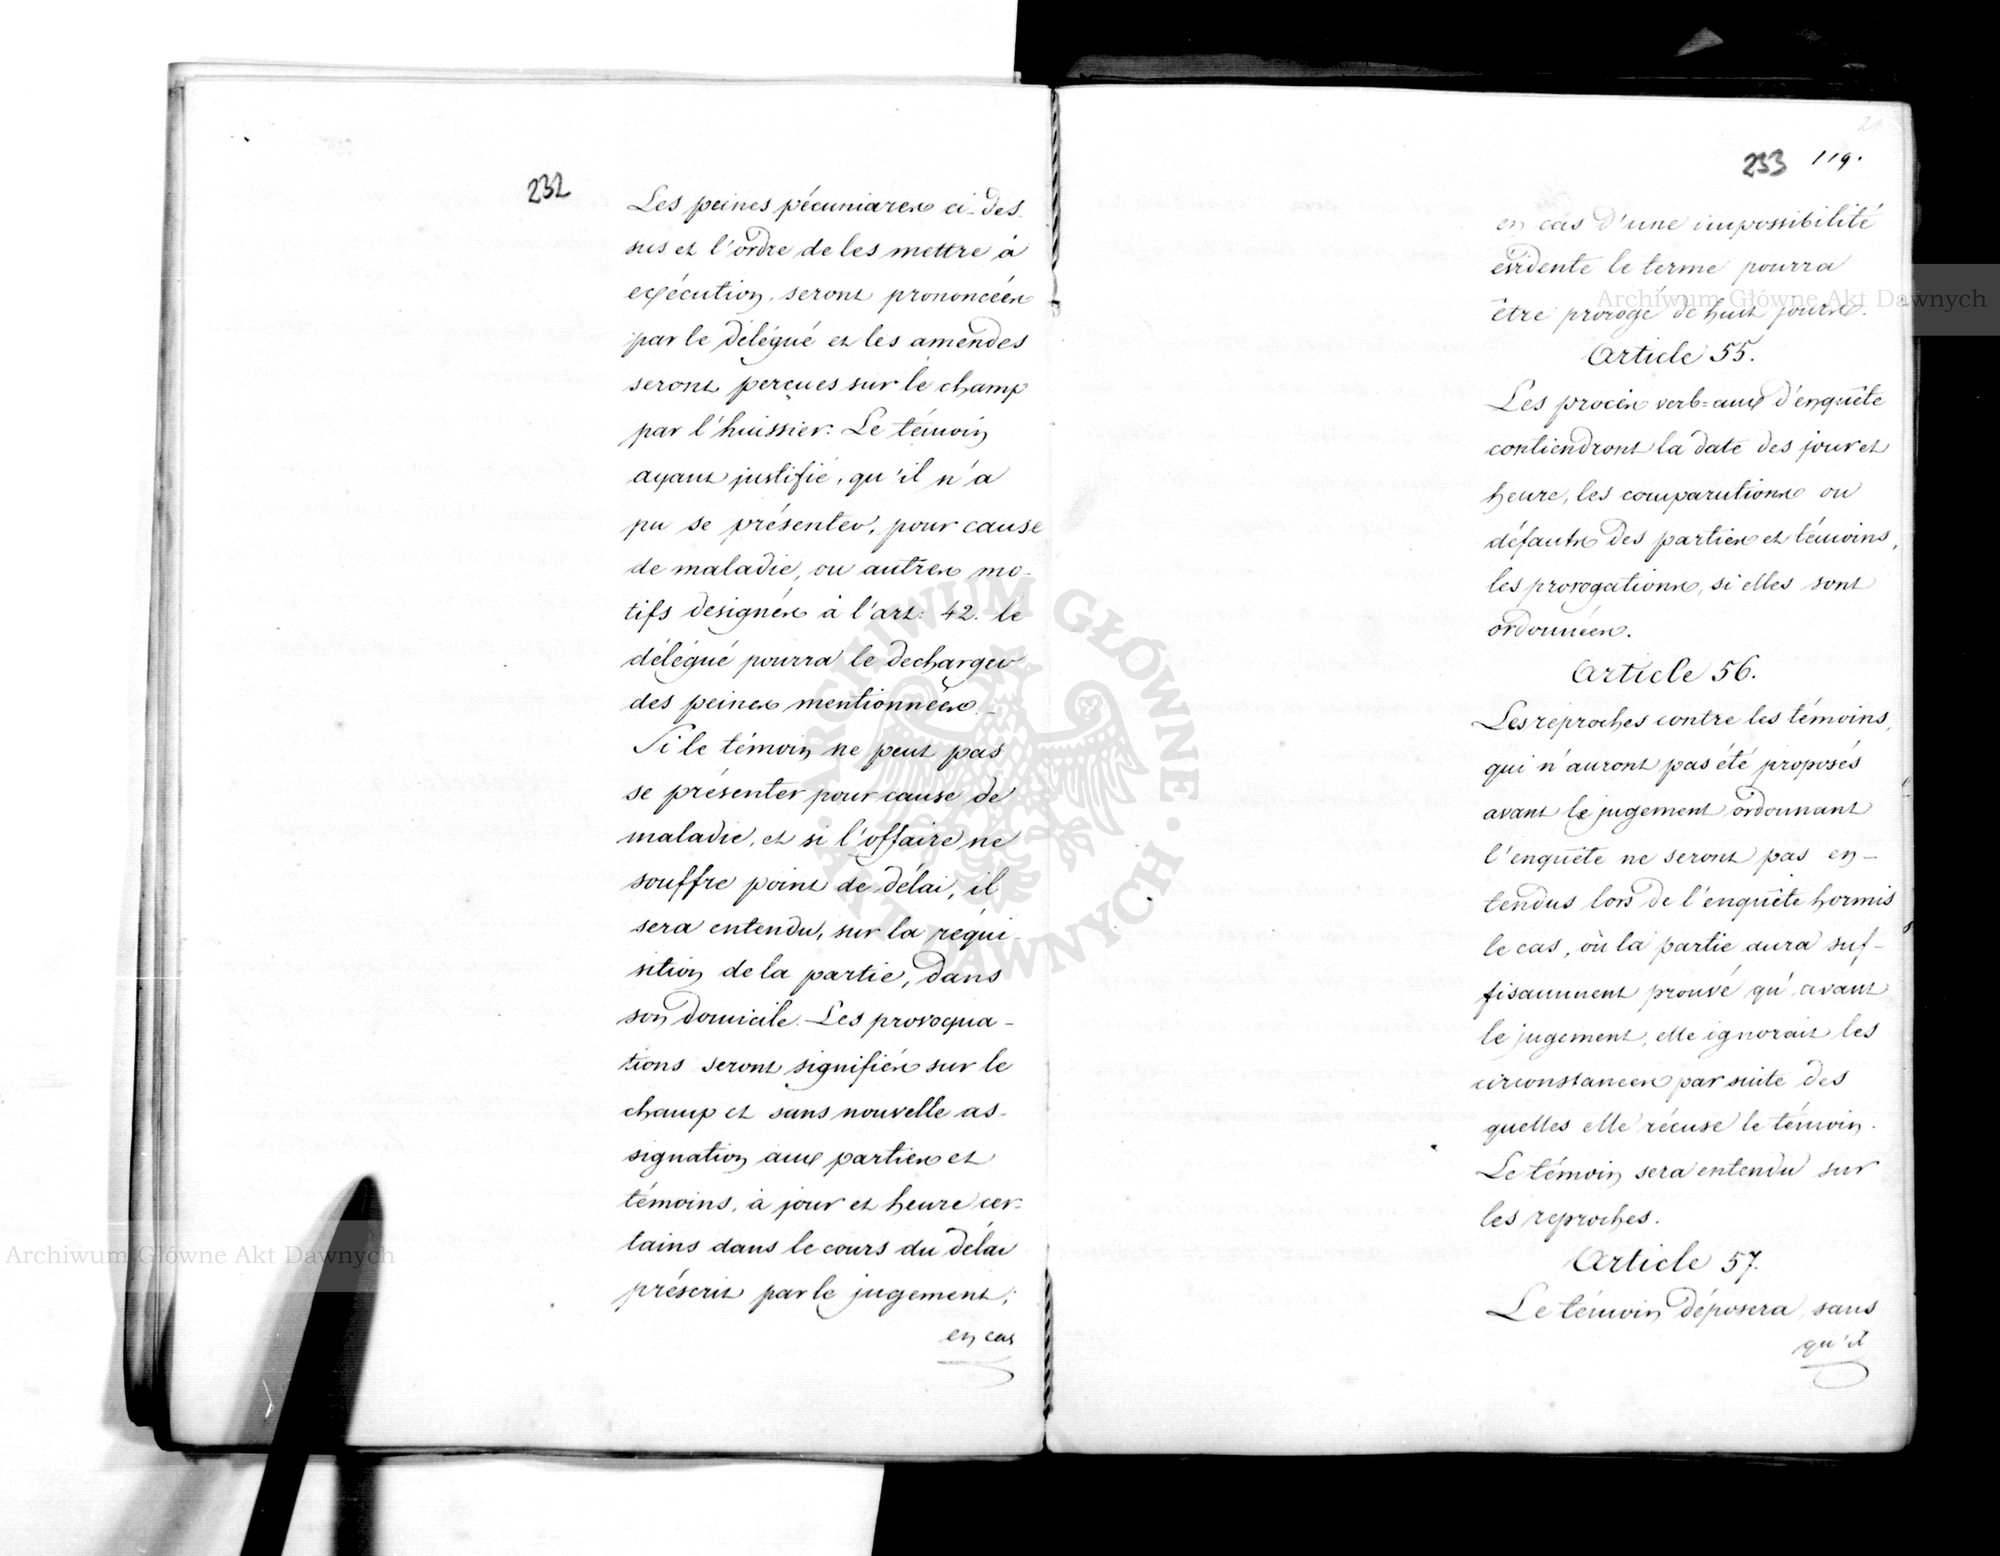 232
Les peines pécuniares ci-des-
sus et l'ordre de les mettre à
exécution, seront prononcées
par le délégué et les amendes
seront perçues sur le champ
par l'huissier. Le témoin
ayant justifié, qu'il n'a
pu se présenter, pour cause
de maladie, ou autres mo-
tifs designés à l'art: 42. le
délégué pourra le decharger
des peines mentionnées.
Si le témoin ne peut pas
se présenter pour cause de
maladie, et si l'affaire ne
souffre point de délai, il
sera entendu, sur la réqui-
sition de la partie, dans
son domicile. Les provoqua-
tions seront signifiés sur le
champ et sans nouvelle as-
signation aux parties et
témoins, à jour et heure cer-
tains dans le cours du délai
préscrit par le jugement;
en cas
233 119.
en cas d'une impossibilité
evidente le terme pourra
être prorogé de huit jours.
Article 55.
Les procès verb=aux d'enquête
contiendront la date des jour et
heure, les comparutions ou
défauts des parties et témoins,
les prorogations, si elles sont
ordonnées.
Article 56.
Les reproches contre les témoins,
qui n'auront pas été proposés
avant le jugement ordonnant
l'enquête ne seront pas en-
tendus lors de l'enquête hormis
le cas, où la partie aura suf-
fisamment prouvé qu'avant
le jugement, elle ignorait les
circonstances par suite des
quelles elle récuse le témoin.
Le témoin sera entendu sur
les reproches.
Article 57.
Le témoin déposera, sans
qu'il
Archiwum Główne Akt Dawnych
Archiwum Główne Akt Dawnych
ARCHIWUM GŁÓWNE AKT DAWNYCH